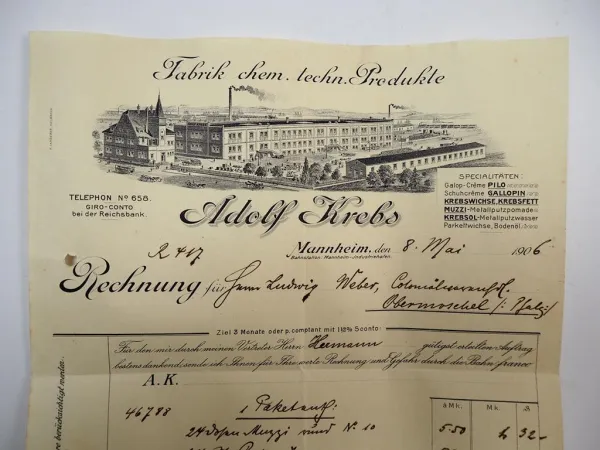 Fabrik chem. techn. Produkte
TELEPHON No 658.
GIRO-CONTO
bei der Reichsbank.
SPECIALITÄTEN:
Galop-Crême PILO
Schuhcrême GALLOPIN
KREBSWICHSE, KREBSFETT
MUZZI-Metallputzpomade
KREBSOL-Metallputzwasser
Parkettwichse, Bodenöl
Adolf Krebs
Mannheim, den 8. Mai 1906
Bahnstation: Mannheim-Industriehafen.
R 417
Rechnung für Herrn Ludwig Weber, Colonialwarenhdl.
Obermoschel (Pfalz)
Ziel 3 Monate oder p. comptant mit 1½% Sconto:
Für den mir durch meinen Vertreter Herrn Heumann gütigst erteilten Auftrag
bestens dankend, sende ich Ihnen für Ihre werte Rechnung und Gefahr durch die Bahn franco
A. K.
à Mk. M. S
46788 1 Paket
24 Dosen Muzzi rund No 10 5.50 32